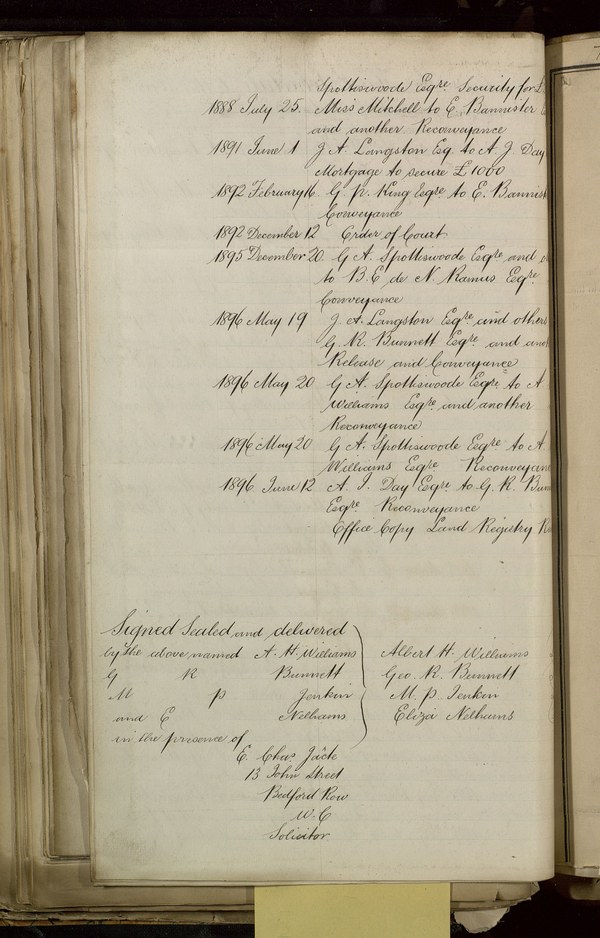 Spottiswoode Esqre Security for £
1888 July 25. Miss Mitchell to E. Bannister
and another Reconveyance
1891 June 1 J A. Langston Esq. to A J Day
Mortgage to secure £1000
1892 February 16. G. P. King Esqre to E. Bannist
Conveyance
1892 December 12 Order of Court
1895 December 20. G A. Spottiswoode Esqre and o
to B. E de N. Ramus Esqre
Conveyance
1896 May 19 J. A. Langston Esqre and others
G. R. Bunnett Esqre and ano
Release and Conveyance
1896 May 20 G A. Spottiswoode Esqre to A
Williams Esqre and another
Reconveyance
1896 May 20 G A. Spottiswoode Esqre to A
Williams Esqre Reconveyan
1896 June 12 A. J. Day Esqre to G. R. Bun
Esqre Reconveyance
Office Copy Land Registry
Signed Sealed and delivered
by the above named A. H. Williams Albert H. Williams
G R Bunnett Geo. R. Bunnett
M P Jenkin M. P. Jenkin
and E Nelhams Eliza Nelhams
in the presence of
E. Chas Jäck
13 John Street
Bedford Row
W. C
Solicitor